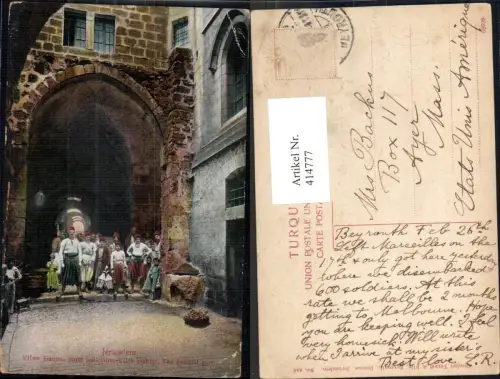 Jérusalem
Artikel Nr.
414777
TURQU
UNION POSTALE UNIV
CARTE POST
Mrs Backus
Box 117
Ayer
Mass.
Etats Unis Amérique
Beyrouth Feb 26th
Left Marseilles on the
17th & only got here yesterday
where we disembarked
600 soldiers. At this
rate we shall be 2 months
getting to Melbourne. Hope
you are keeping well. I feel
very homesick. Will write
when I arrive at my sister's
Best love. L.R.